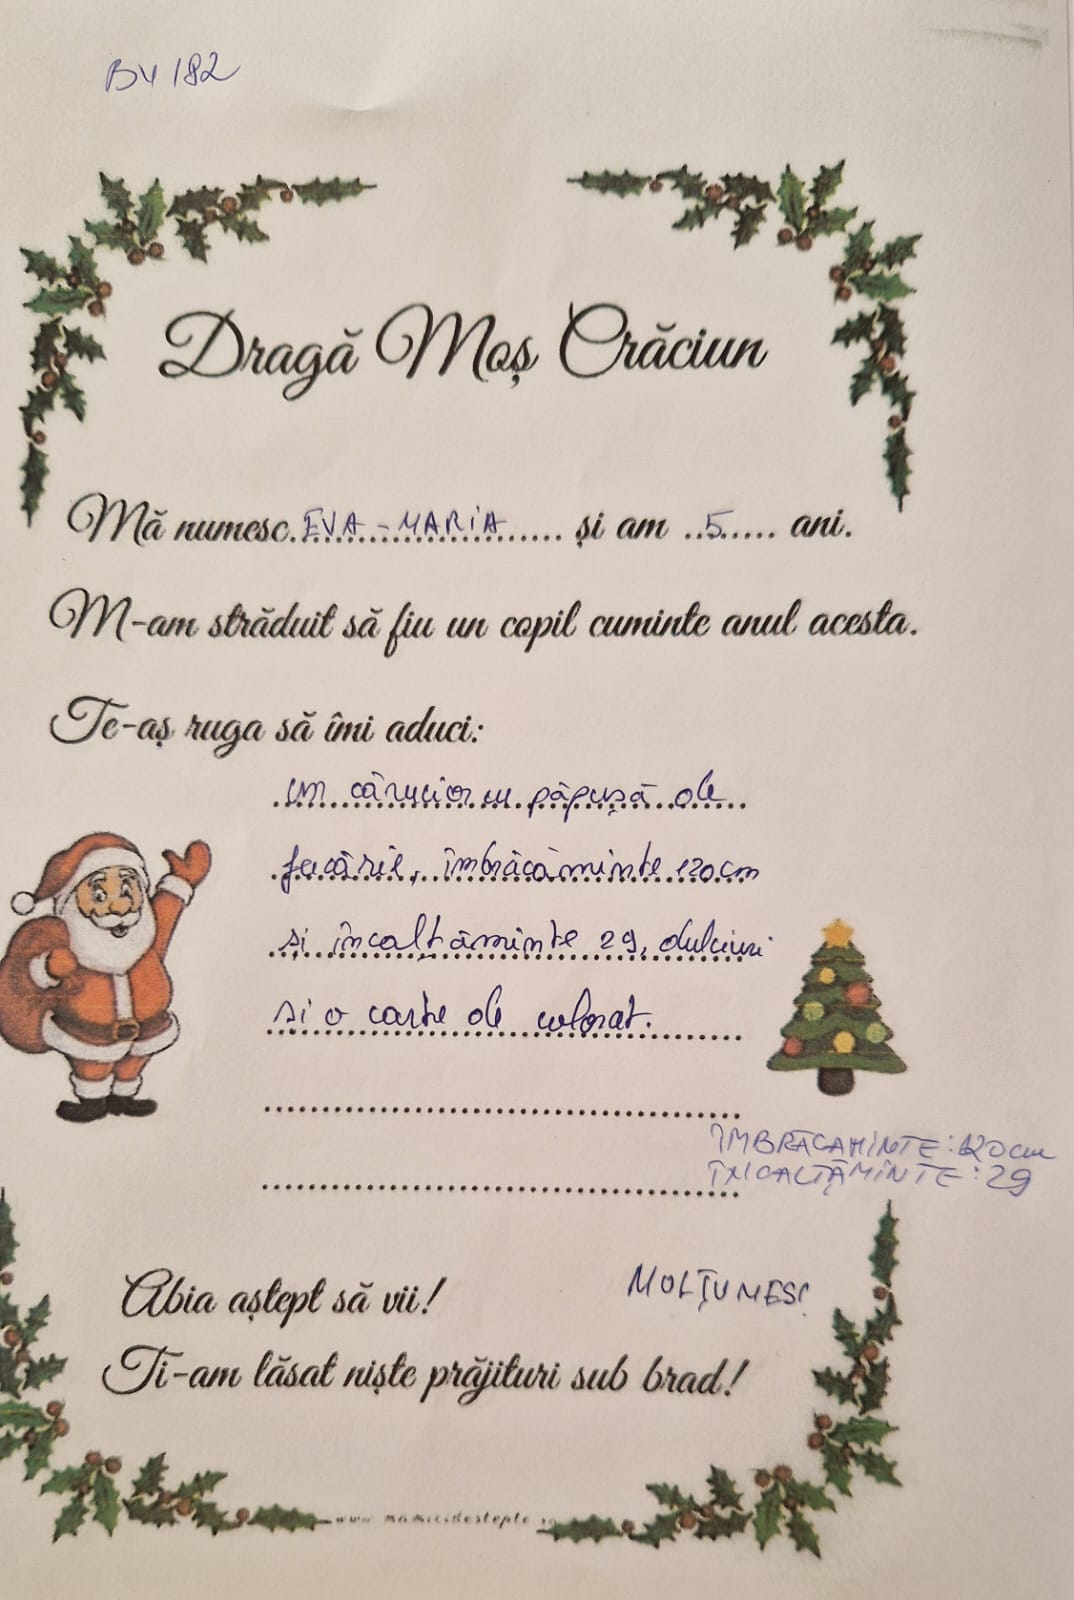 BV 182
Dragă Moș Crăciun
Mă numesc EVA-MARIA și am 5 ani.
M-am străduit să fiu un copil cuminte anul acesta.
Te-aș ruga să îmi aduci:
un cărucior cu păpușă de
jucărie, îmbrăcăminte 120cm
si încalțăminte 29, dulciuri
si o carte de colorat.
ÎMBRĂCAMINTE: 120 cm
ÎNCALȚĂMINTE: 29
Abia aștept să vii!
MULȚUMESC
Ti-am lăsat niște prăjituri sub brad!
www.mamicidestepte.ro